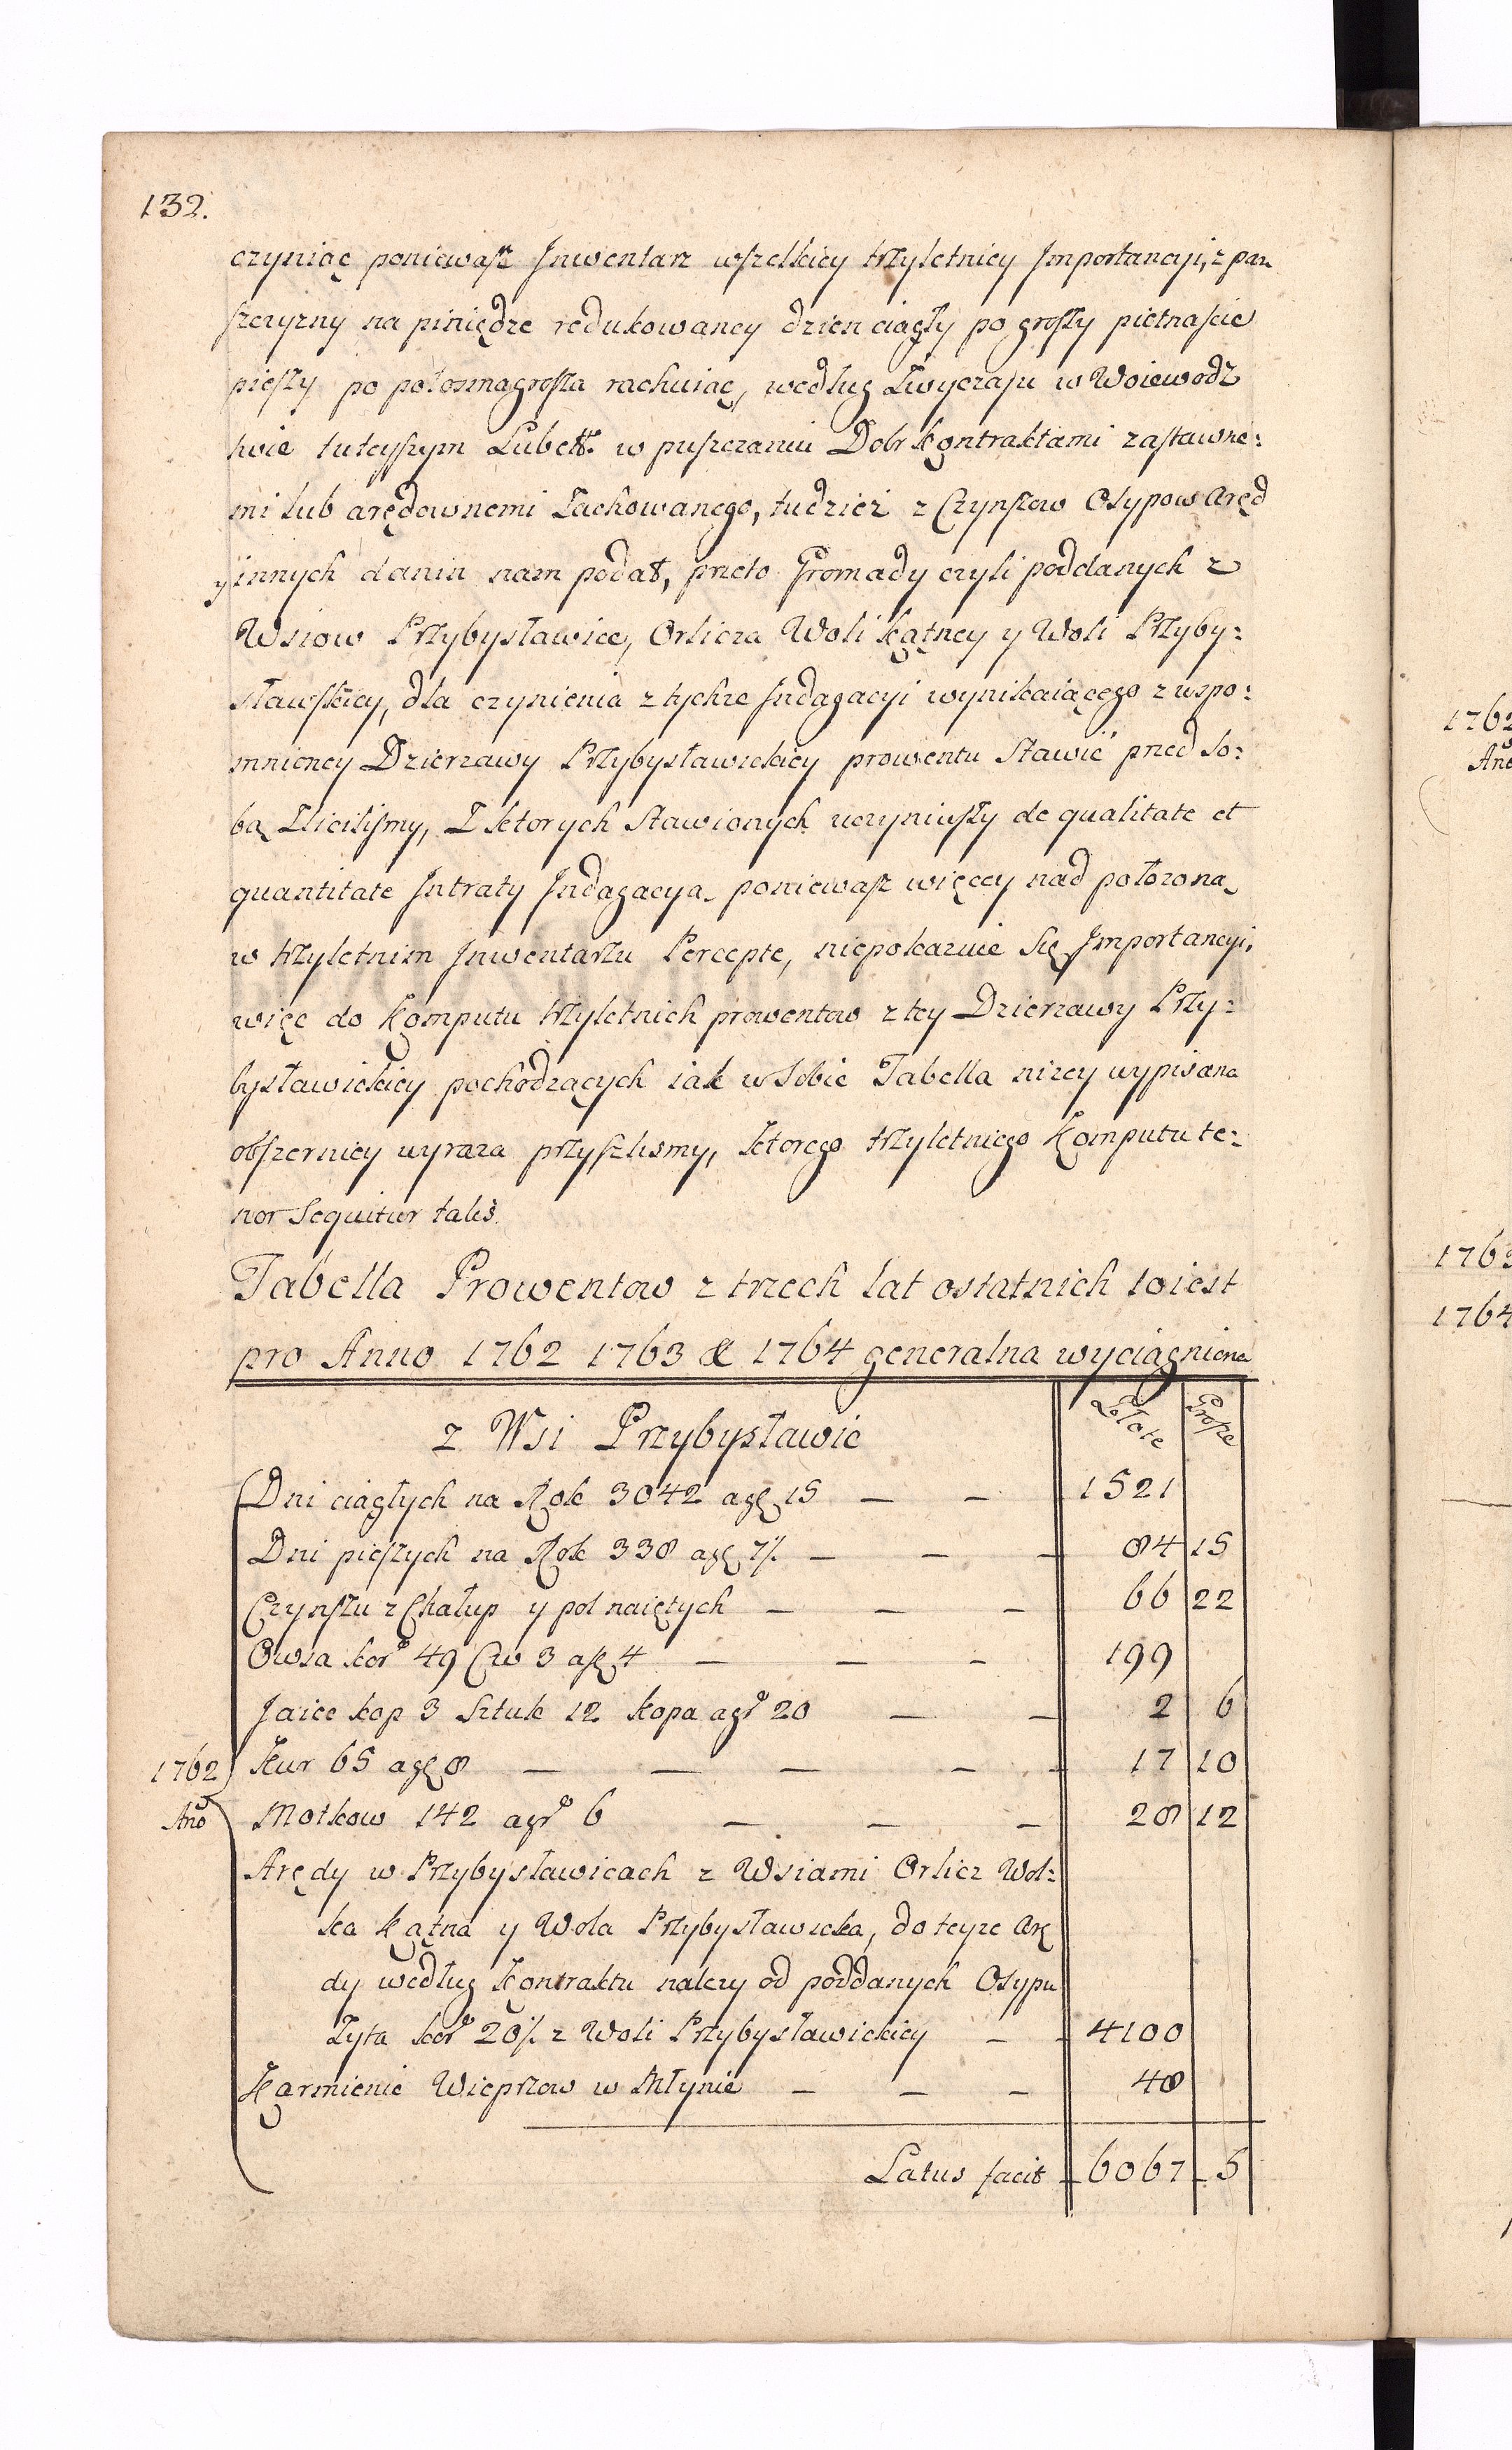 132.
czyniąc poniewasz Jnwentarz wszelkiey trzyletniey Jmportancyi, z pan
szczyzny na piniędze redukowaney dzien ciągły po groszy pietnascie
pieszy po połosmagrosza rachuiąc, według Zwyczaju w Woiewodz
twie tuteyszym Lubelt. w puszczaniu Dobr kontraktami zastawne:
mi lub arędownemi Zachowanego, tudzież z Czynszow Osypow aręd
y innych danin nam podał, przeto Gromady czyli poddanych z
Wsiow Przybysławice, Orlicza Woli kątney y Woli Przyby:
sławskiey, dla czynienia z tychże Jndagacyi wynikaiącego z wspo:
mnioney Dzierzawy Przybysławickiey prowentu Stawić przed So:
bą Zliciliśmy, Z ktorych Stawionych uczyniwszy de qualitate et
quantitate Jntraty Jndagacyą poniewasz więcey nad położoną
w trzyletnim Jnwentarzu Percepte, niepokazuie Się Jmportancyi,
więc do komputu trzyletnich prowentow z tey Dzierzawy Przy:
bysławickiey pochodzących iak w Sobie Tabella niżey wypisana
obszerniey wyraza przyszlismy, ktorego trzyletniego komputu te:
nor Sequitur talis.
Tabella Prowentow z trzech lat ostatnich toiest
pro Anno 1762 1763 & 1764 generalna wyciągniona
z Wsi Przybysławic Złote Grosze
Dni ciągłych na Rok 3042 a gr 15 — — 1521
Dni pieszych na Rok 338 a gr 7/. — — — 84 15
Czynszu z Chałup y pol naiętych — — — 66 22
Owsa kor 49 Cw 3 a zł 4 — — — 199
Jaiec kop 3 Sztuk 12 kopa a gr 20 — — 2 6
1762 Kur 65 a gr 8 — — — — — 17 10
Ano Motkow 142 a gr 6 — — — 28 12
Arędy w Przybysławicach z Wsiami Orlicz Wol:
ka kątna y Wola Przybysławska, do teyze Arę
dy według kontraktu nalezy od poddanych Osypu
Zyta kor 20/. z Woli Przybysławickiey — — 4100
Karmienie Wieprzow w Młynie — — — 48
Latus facit 6067 5
1762
Ano
1763
1764